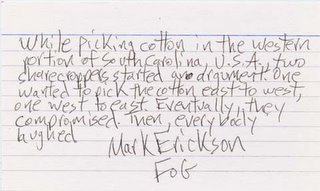 While picking cotton in the western
portion of South Carolina, U.S.A., two
sharecroppers started an argument. One
wanted to pick the cotton east to west,
one west to east. Eventually, they
compromised. Then, everybody
laughed
Mark Erickson
FoG